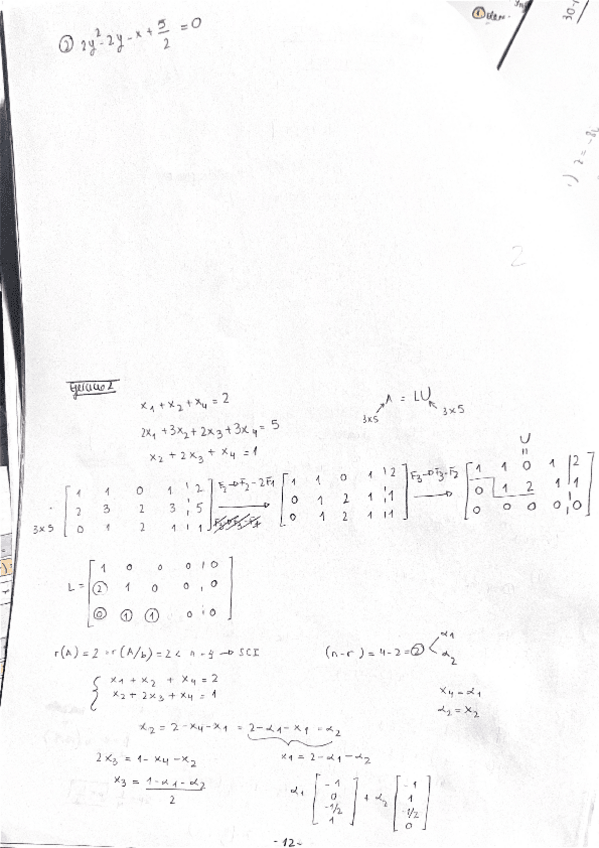 ② 2y² - 2y - x + 5/2 = 0
① 
30-
1) z = -8i
2
Ejercicio 2
x₁ + x₂ + x₄ = 2
2x₁ + 3x₂ + 2x₃ + 3x₄ = 5
x₂ + 2x₃ + x₄ = 1
A = LU
3x5 3x5
U
=
3x5 [1 1 0 1 | 2] F₂→F₂-2F₁ [1 1 0 1 | 2] F₃→F₃-F₂ [1 1 0 1 | 2]
[2 3 2 3 | 5] [0 1 2 1 | 1] [0 1 2 1 | 1]
[0 1 2 1 | 1] [0 1 2 1 | 1] [0 0 0 0 | 0]
L = [1 0 0 0 | 0]
[② 1 0 0 | 0]
[⓪ ① ① 0 | 0]
r(A) = 2 = r(A/b) = 2 < n - → SCI (n-r) = 4-2 = ② < α₁ α₂
{ x₁ + x₂ + x₄ = 2
x₂ + 2x₃ + x₄ = 1
x₄ = α₁
α₂ = x₂
x₂ = 2 - x₄ - x₁ = 2 - α₁ - x₁ = α₂
2x₃ = 1 - x₄ - x₂ x₁ = 2 - α₁ - α₂
x₃ = (1 - α₁ - α₂)/2 α₁ [-1 0 -1/2 1] + α₂ [-1 1 -1/2 0]
- 12 -